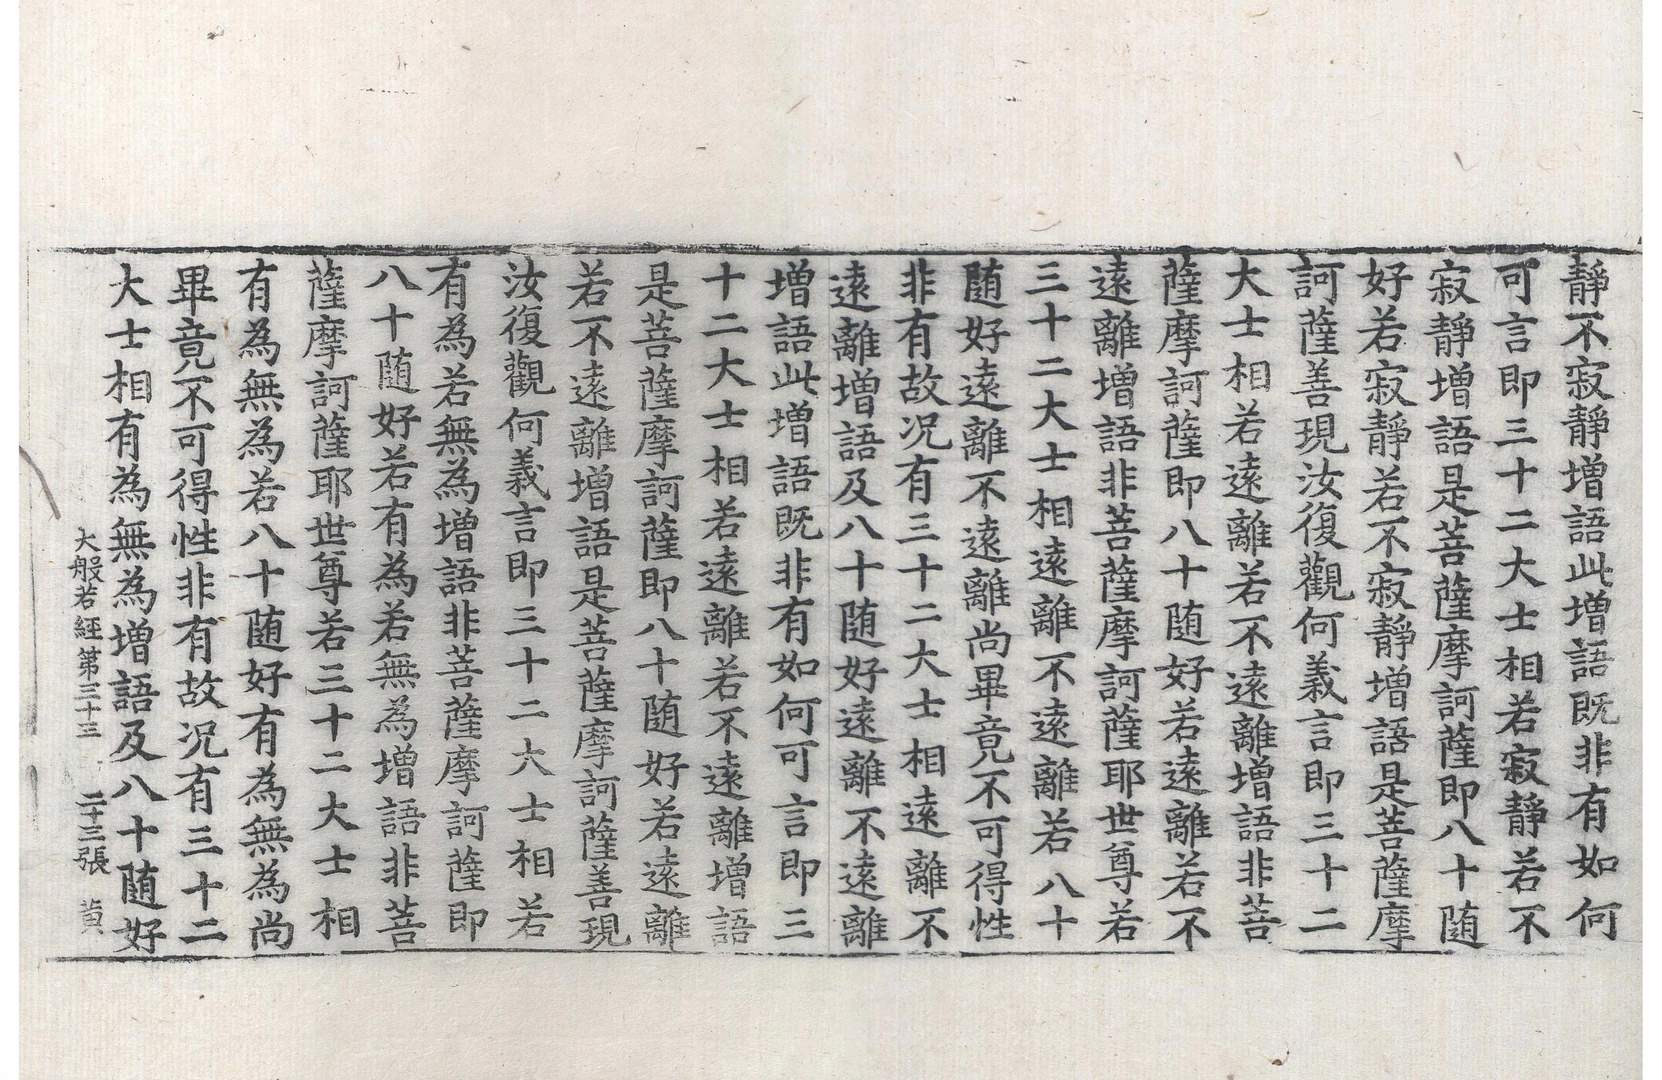 靜不寂靜增語此增語既非有如何
可言即三十二大士相若寂靜若不
寂靜增語是菩薩摩訶薩即八十随
好若寂靜若不寂靜增語是菩薩摩
訶薩善現汝復觀何義言即三十二
大士相若遠離若不遠離增語非菩
薩摩訶薩即八十随好若遠離若不
遠離增語非菩薩摩訶薩耶世尊若
三十二大士相遠離不遠離若八十
随好遠離不遠離尚畢竟不可得性
非有故况有三十二大士相遠離不
遠離增語及八十随好遠離不遠離
增語此增語既非有如何可言即三
十二大士相若遠離若不遠離增語
是菩薩摩訶薩即八十随好若遠離
若不遠離增語是菩薩摩訶薩善現
汝復觀何義言即三十二大士相若
有為若無為增語非菩薩摩訶薩即
八十随好若有為若無為增語非菩
薩摩訶薩耶世尊若三十二大士相
有為無為若八十随好有為無為尚
畢竟不可得性非有故况有三十二
大士相有為無為增語及八十随好
大般若經第三十三 二十三張 黄